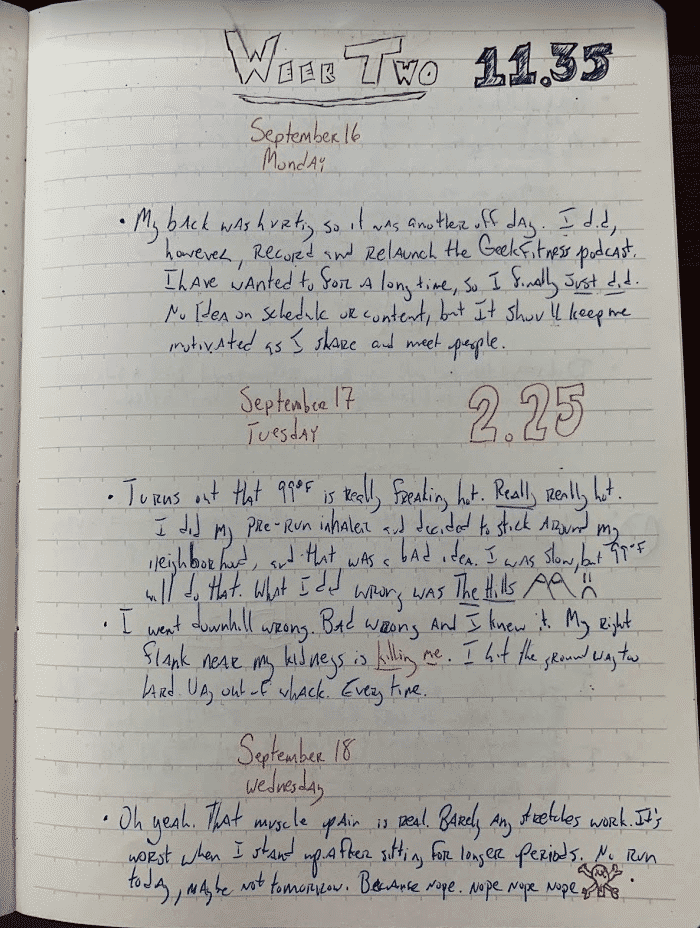 Week Two 11.35
September 16
Monday
• My back was hurtig so it was another off day. I did,
however, record and relaunch the GeekFitness podcast.
I have wanted to for a long time, so I finally just did.
No Idea on schedule or content, but It should keep me
motivated as I share and meet people.
September 17 2.25
Tuesday
• Turns out that 99°F is really freaking hot. Really really hot.
I did my pre-run inhaler and decided to stick around my
neighborhood, and that was a bad idea. I was slow, but 99°F
will do that. What I did wrong was The Hills
• I went downhill wrong. Bad wrong and I knew it. My right
flank near my kidneys is killing me. I hit the ground way too
hard. Way out of whack. Every time.
September 18
Wednesday
• Oh yeah. That muscle pain is real. Barely any stretches work. It's
worst when I stand up after sitting for longer periods. No run
today, maybe not tomorrow. Because nope. Nope nope nope